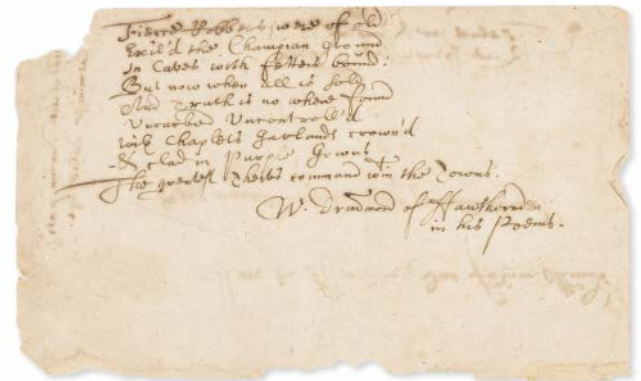 Fierce Robbers were of old
Exil'd the Champian ground
In Caves with fetters bound:
But now when all is sold
And Truth is no where found
Uncurbed Uncontrol'd
with Chaplets Garlands crown'd
& clad in Purple Gowns
The greatest Theives command wtin the Towns.
W. Drummond of Hawthornden
in his Poems.